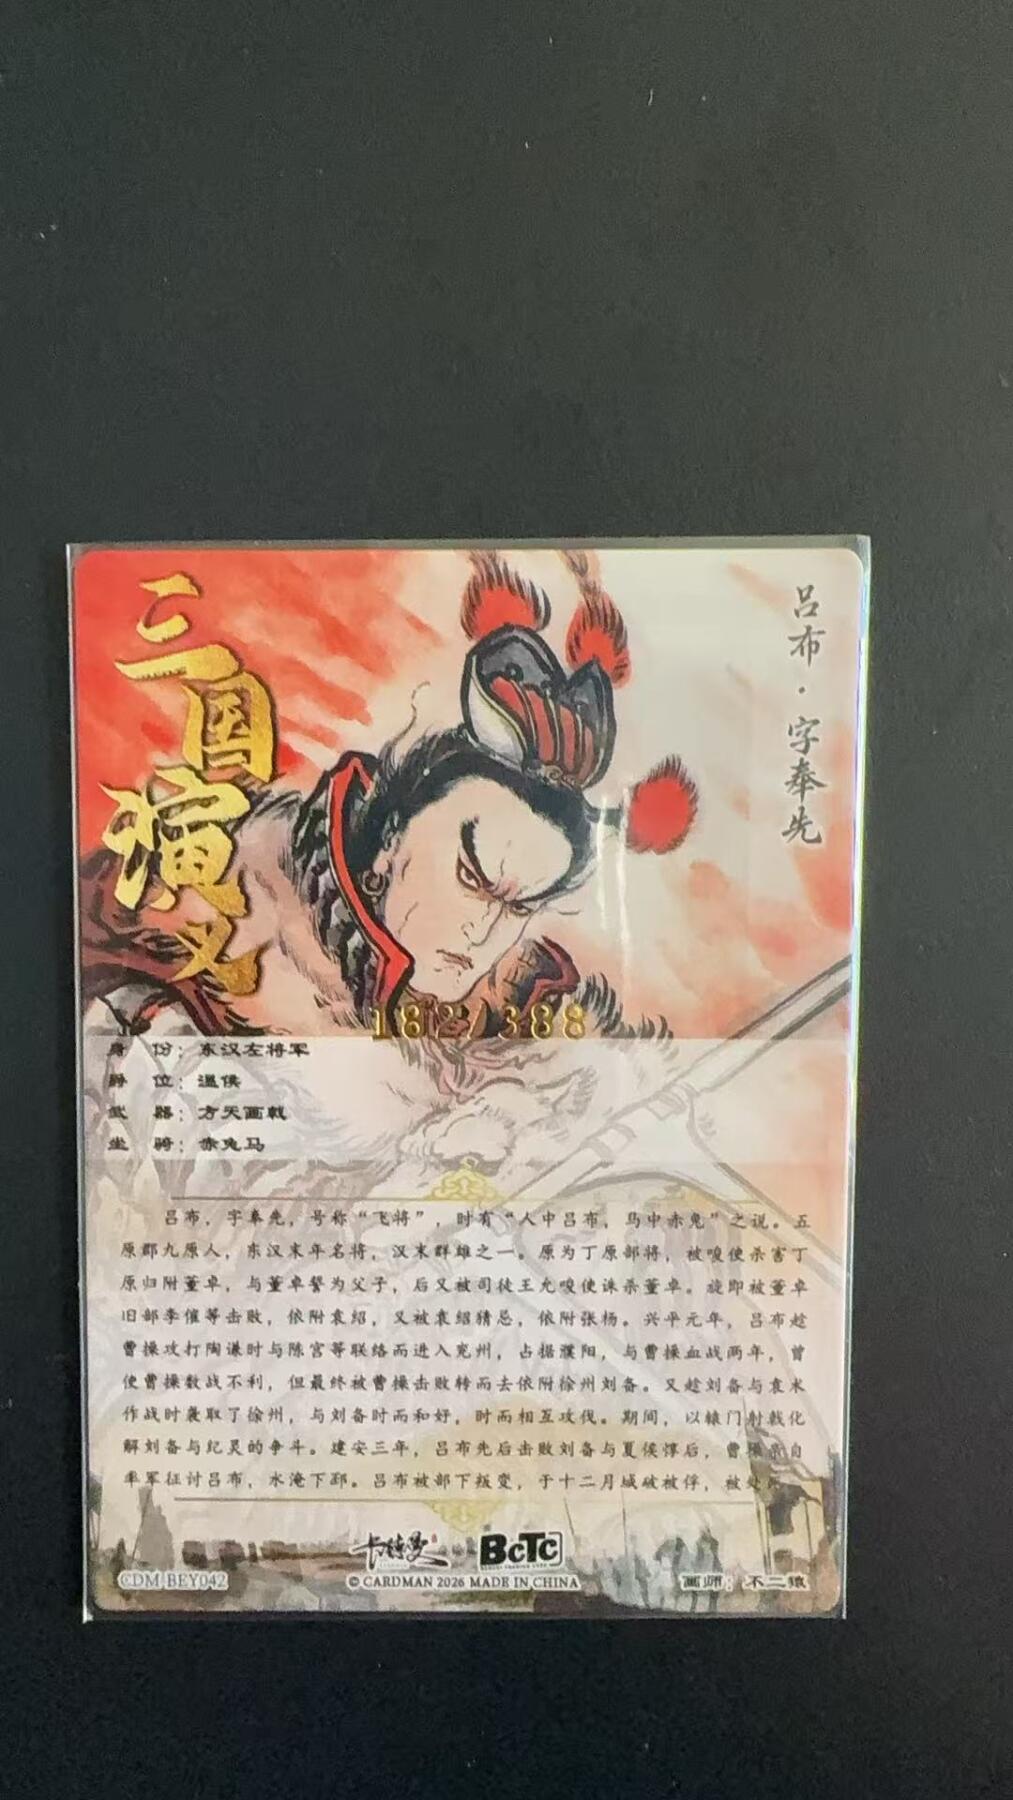 三国演义
吕布·字奉先
182/388
身 份：东汉左将军
爵 位：温侯
武 器：方天画戟
坐 骑：赤兔马
吕布，字奉先，号称“飞将”，时有“人中吕布，马中赤兔”之说。五
原郡九原人，东汉末年名将，汉末群雄之一。原为丁原部将，被唆使杀害丁
原归附董卓，与董卓誓为父子，后又被司徒王允唆使诛杀董卓。旋即被董卓
旧部李傕等击败，依附袁绍，又被袁绍猜忌，依附张杨。兴平元年，吕布趁
曹操攻打陶谦时与陈宫等联络而进入兖州，占据濮阳，与曹操血战两年，曾
使曹操数战不利，但最终被曹操击败转而去依附徐州刘备。又趁刘备与袁术
作战时袭取了徐州，与刘备时而和好，时而相互攻伐。期间，以辕门射戟化
解刘备与纪灵的争斗。建安三年，吕布先后击败刘备与夏侯惇后，曹操亲自
率军征讨吕布，水淹下邳。吕布被部下叛变，于十二月城破被俘，被处
卡特曼 BCTC
CDM-BEY042 © CARDMAN 2026 MADE IN CHINA 画师：不二猿